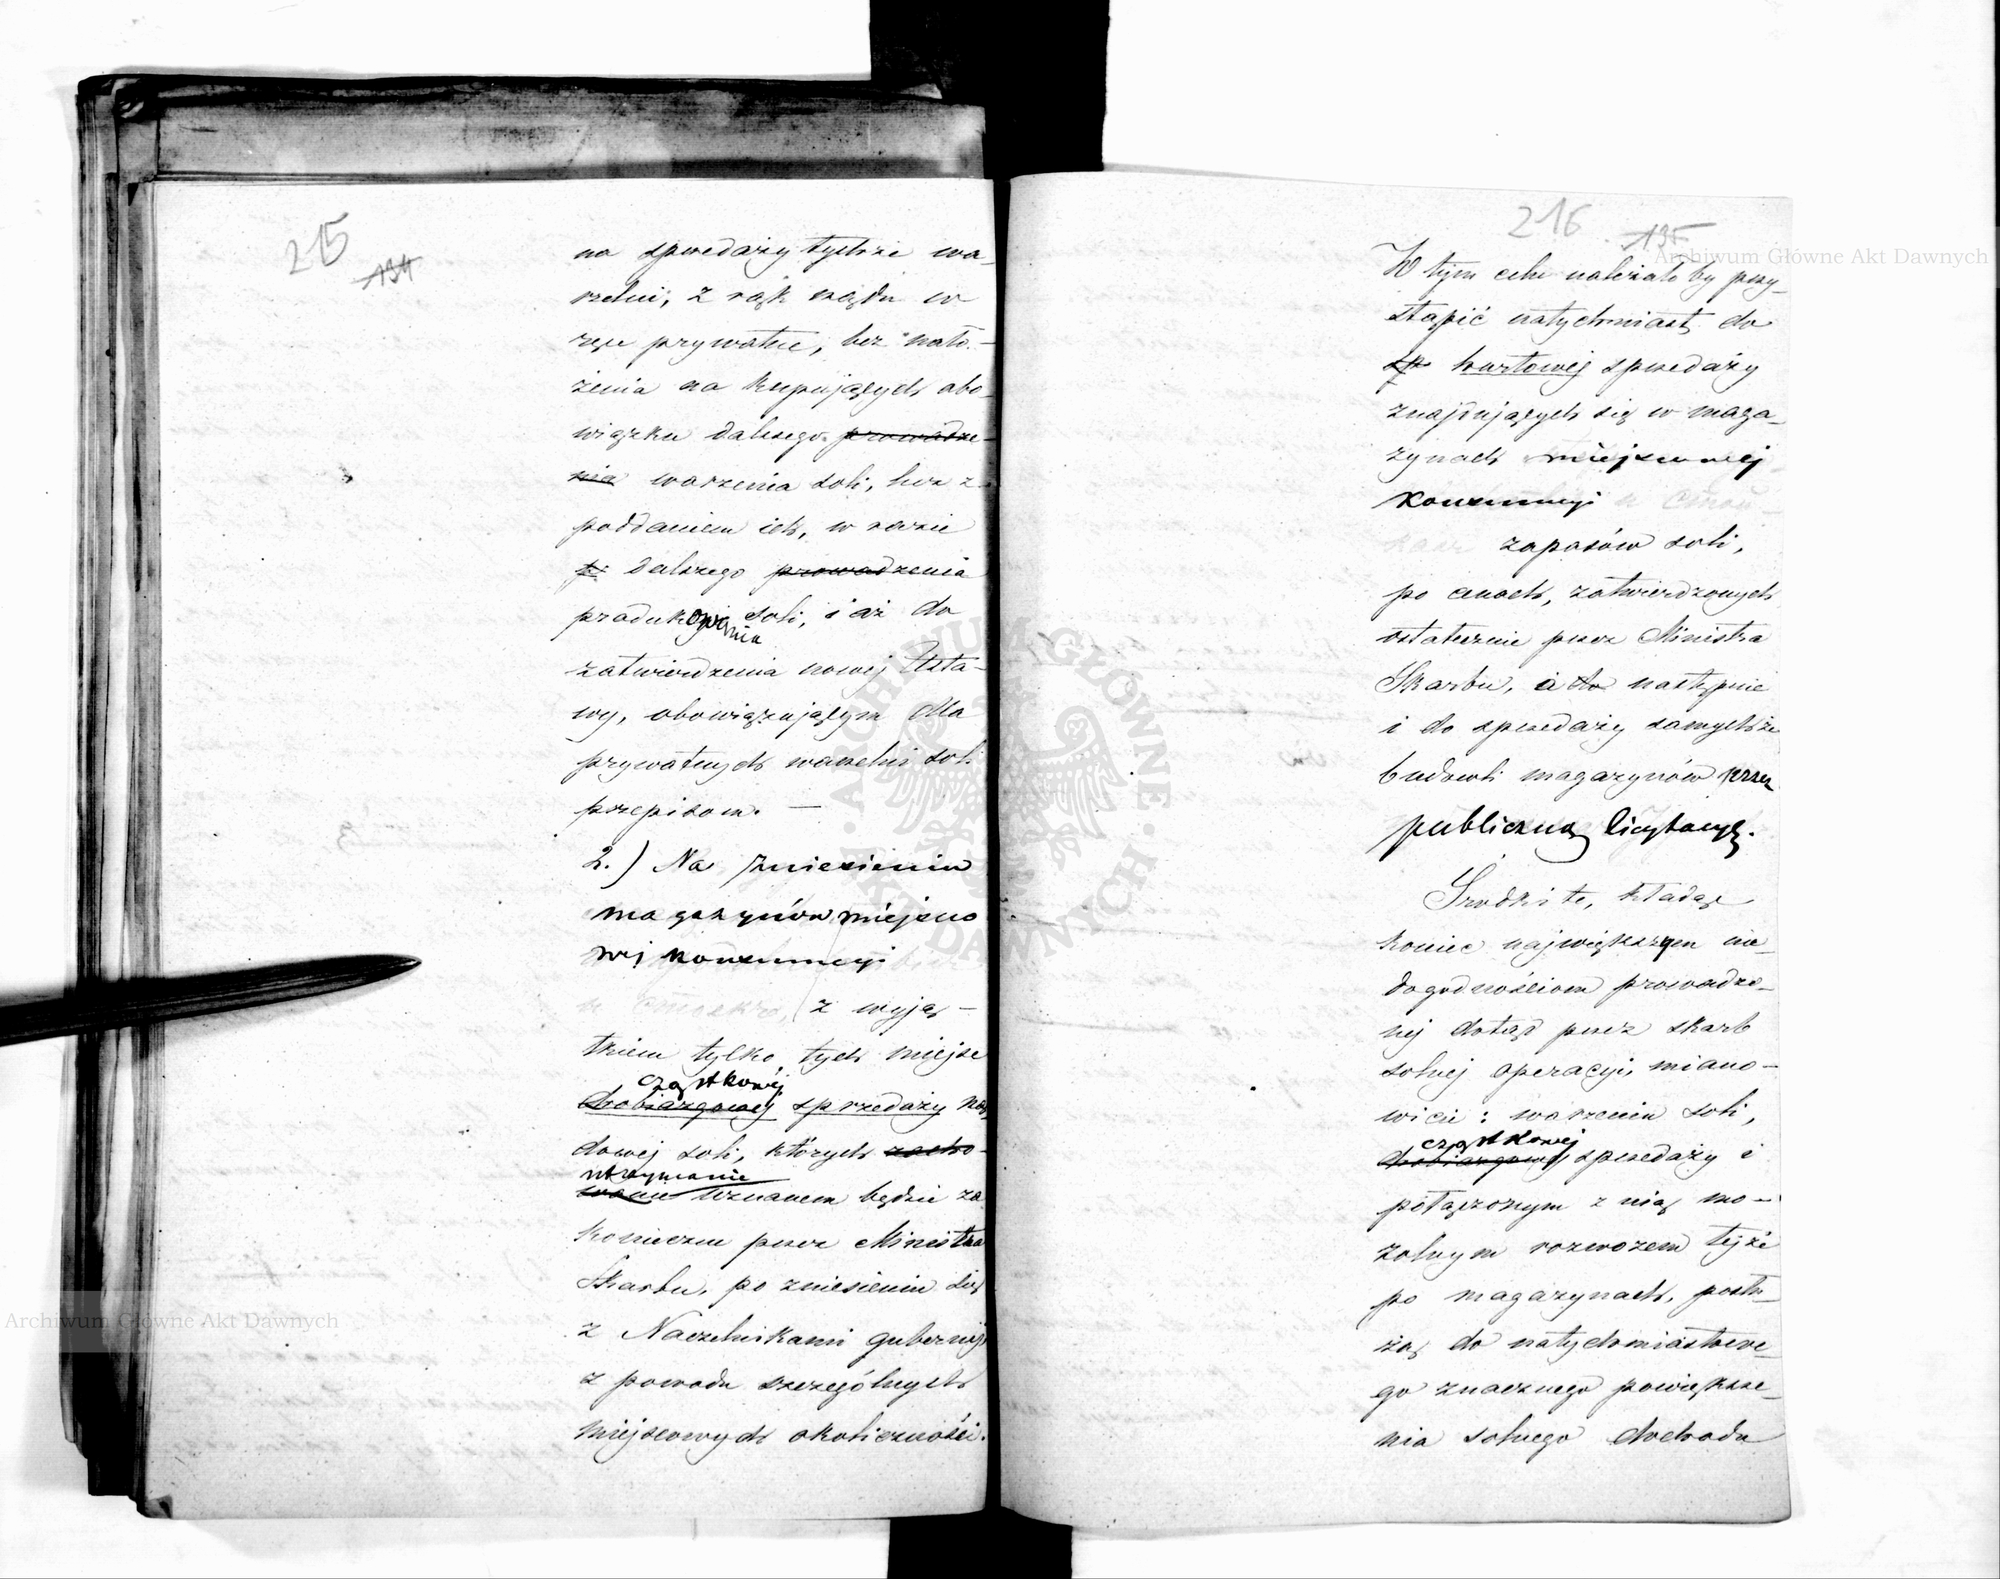 215
134
na sprzedaży tychże wa-
rzelni, z rąk rządu w
ręce prywatne, bez nało-
żenia na kupujących obo-
wiązku dalszego prowadze-
nia warzenia soli, lecz z
poddaniem ich, w razie
dalszego prowadzenia
produkowania soli, i aż do
zatwierdzenia nowej Usta-
wy, obowiązującym dla
prywatnych warzelni soli
przepisom. —
2.) Na zniesieniu
magazynów miejsco
wej konsumcyi
z wyją-
tkiem tylko tych miejsc
cząstkowej
drobiazgowej sprzedaży rzą
dowej soli, których zacho-
utrzymanie
wanie uznanem będzie za
konieczne przez Ministra
Skarbu, po zniesieniu się
z Naczelnikami gubernij,
z powodu szczególnych
miejscowych okoliczności.
216
135
W tym celu należałoby przy-
stąpić natychmiast do
sp hurtowej sprzedaży
znajdujących się w maga-
zynach miejscowej
konsumcyi
zapasów soli,
po cenach, zatwierdzonych
ostatecznie przez Ministra
Skarbu, a do następnie
i do sprzedaży samychże
budowli magazynów przez
publiczną licytacyę.
Środki te, kładąc
koniec największym nie-
dogodnościom prowadzo-
nej dotąd przez skarb
solnej operacyi, miano-
wicie: warzeniu soli,
cząstkowej
drobiazgowej sprzedaży i
połączonym z nią mo-
zolnym rozwozem tejże
po magazynach, posłu-
żą do natychmiastowe-
go znacznego powiększe-
nia solnego dochodu
Archiwum Główne Akt Dawnych
Archiwum Główne Akt Dawnych
ARCHIWUM GŁÓWNE AKT DAWNYCH